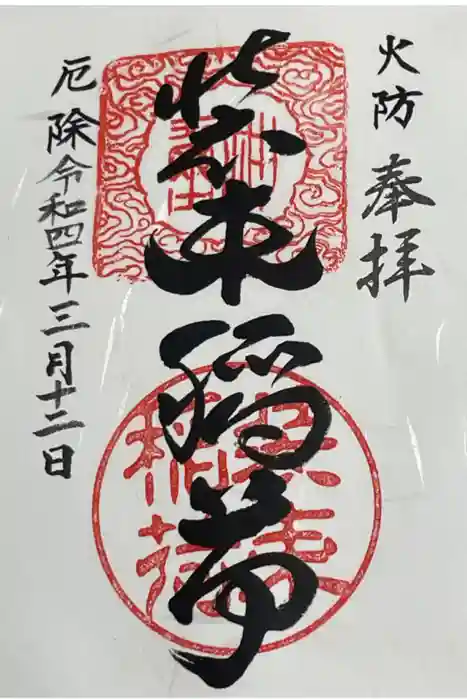 火防 奉拝
装束稲荷
厄除 令和四年三月十二日